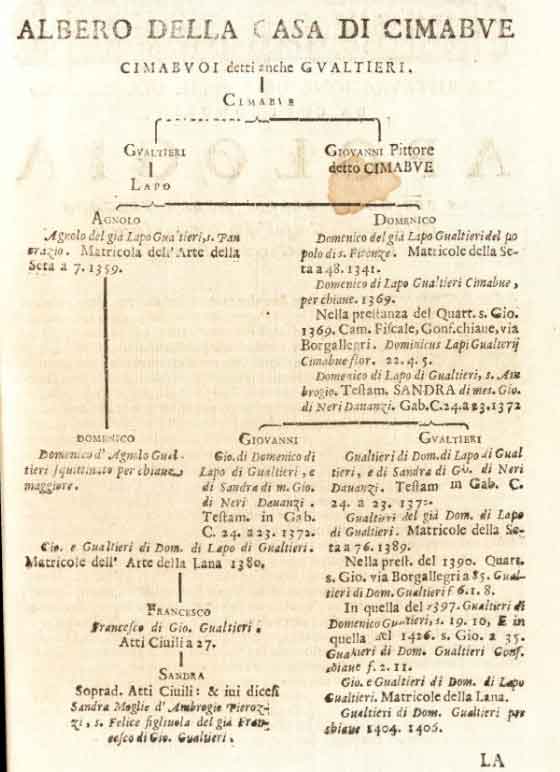 ALBERO DELLA CASA DI CIMABVE
CIMABVOI detti anche GVALTIERI.
CIMABVE
GVALTIERI
GIOVANNI Pittore
detto CIMABVE
LAPO
AGNOLO
Agnolo del già Lapo Gualtieri, s. Pan
brazio. Matricola dell' Arte della
Seta a 7. 1359.
DOMENICO
Domenico del già Lapo Gualtieri del po
polo di s. Firenze. Matricole della Se-
ta a 48. 1341.
Domenico di Lapo Gualtieri Cimabue,
per chiaue. 1369.
Nella prestanza del Quart. s. Gio.
1369. Cam. Fiscale, Gonf. chiaue, via
Borgallegri. Dominicus Lapi Gualterij
Cimabue flor. 22. 4. 5.
Domenico di Lapo di Gualtieri, s. Am
brogio. Testam. SANDRA di mes. Gio.
di Neri Dauanzi. Gab. C. 24. a 23. 1372
DOMENICO
Domenico d' Agnolo Gual-
tieri squittinato per chiaue
maggiore.
GIOVANNI
Gio. di Domenico di
Lapo di Gualtieri, e
di Sandra di m. Gio.
di Neri Dauanzi.
Testam. in Gab.
C. 24. a 23. 1372.
Gio. e Gualtieri di Dom. di Lapo di Gualtieri.
Matricole dell' Arte della Lana 1380.
FRANCESCO
Francesco di Gio. Gualtieri.
Atti Ciuili a 27.
SANDRA
Soprad. Atti Ciuili: & iui dicesi
Sandra Moglie d' Ambrogio Pieroz-
zi, s. Felice figliuola del già Fran-
cesco di Gio. Gualtieri.
GVALTIERI
Gualtieri di Dom. di Lapo di Gual
tieri, e di Sandra di Gio. di Neri
Dauanzi. Testam in Gab. C.
24. a 23. 1372.
Gualtieri del già Dom. di Lapo
di Gualtieri. Matricole della Se-
ta a 76. 1389.
Nella prest. del 1390. Quart.
s. Gio. via Borgallegri a 85. Gual-
tieri di Dom. Gualtieri f 6. 1. 8.
In quella del 1397. Gualtieri di
Domenico Gualtieri, s. 19. 10, E in
quella del 1426. s. Gio. a 35.
Gualtieri di Dom. Gualtieri Gonf.
chiaue f. 2. 11.
Gio. e Gualtieri di Dom. di Lapo
Gualtieri. Matricole della Lana.
Gualtieri di Dom. Gualtieri per
chiaue 1404. 1406.
LA